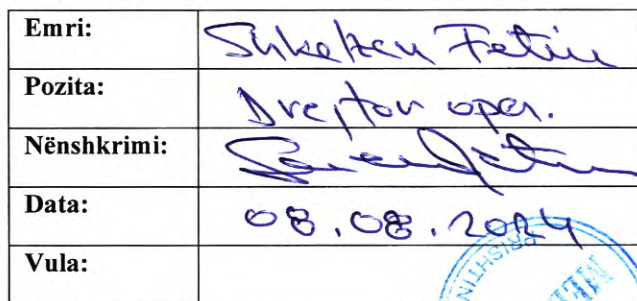 Emri: Shkelzen Fetiu
Pozita: Drejtor oper.
Nënshkrimi:
Data: 08.08.2024
Vula:
PRISHTIN